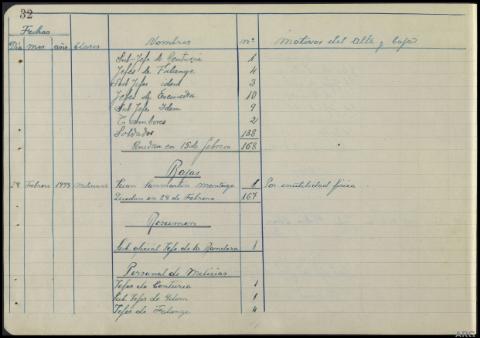 32
Fechas
Dia mes año Clases Nombres nº motivos del alta y baja
Sub-Jefe de Centuria 1
Jefes de Falange 4
Sub Jefes idem 3
Jefes de Escuadra 10
Sub Jefes Idem 9
Tambores 2
Soldados 138
Quedan en 15 de febrero 168
Bajas
24 Febrero Juan 1 Por inutilidad física
Quedan en 24 de Febrero 167
Resumen
Sub. oficial Jefe de la Bandera 1
Personal de Milicias
Jefes de Centuria 1
Sub. Jefes de Idem 1
Jefes de Falange 4
ARG